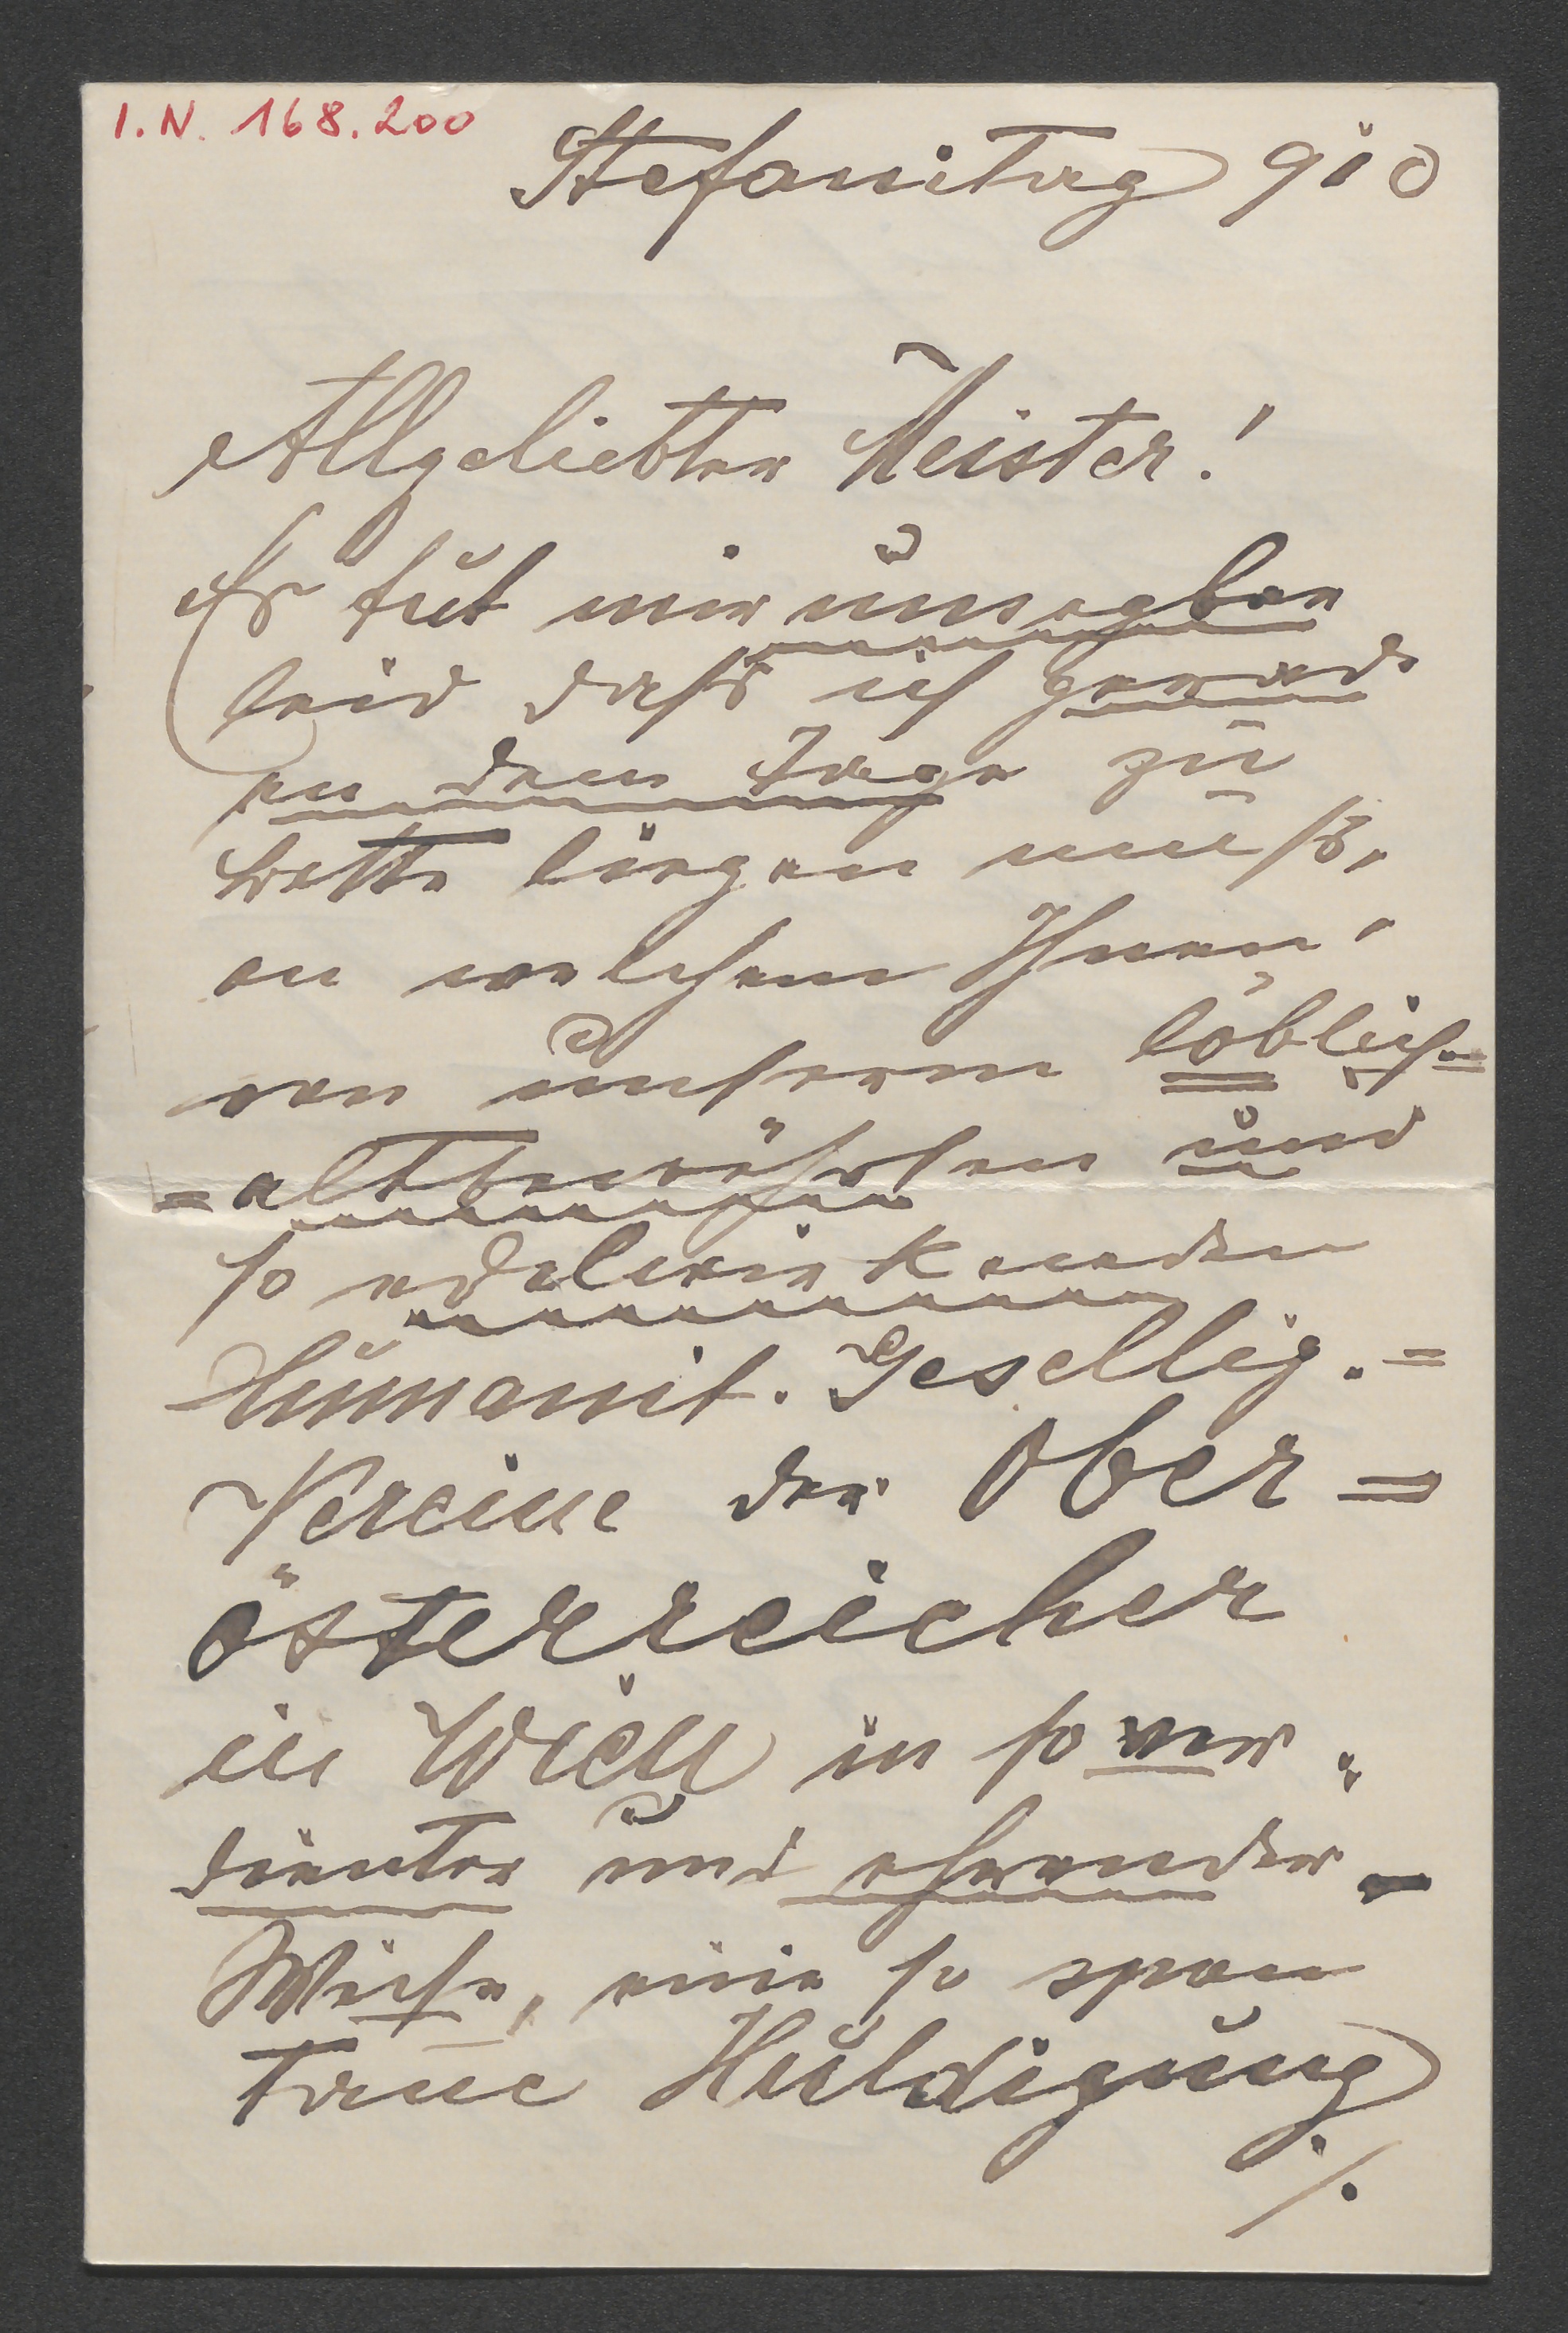 I.N. 168.200
Stefanitag 910
Allgeliebter Meister!
Es tut mir unsagbar
leid dass ich gerade
an dem Tage zu
Bette liegen muß,
an welchem Ihnen
von unserem löblich=
=altbewährten und
so edelwirkenden
Humanit. Gesellig.=
Vereine der Ober=
österreicher
in Wien in so ver=
dienter und ehrender
Weise, eine so span
tane Huldigung
./.